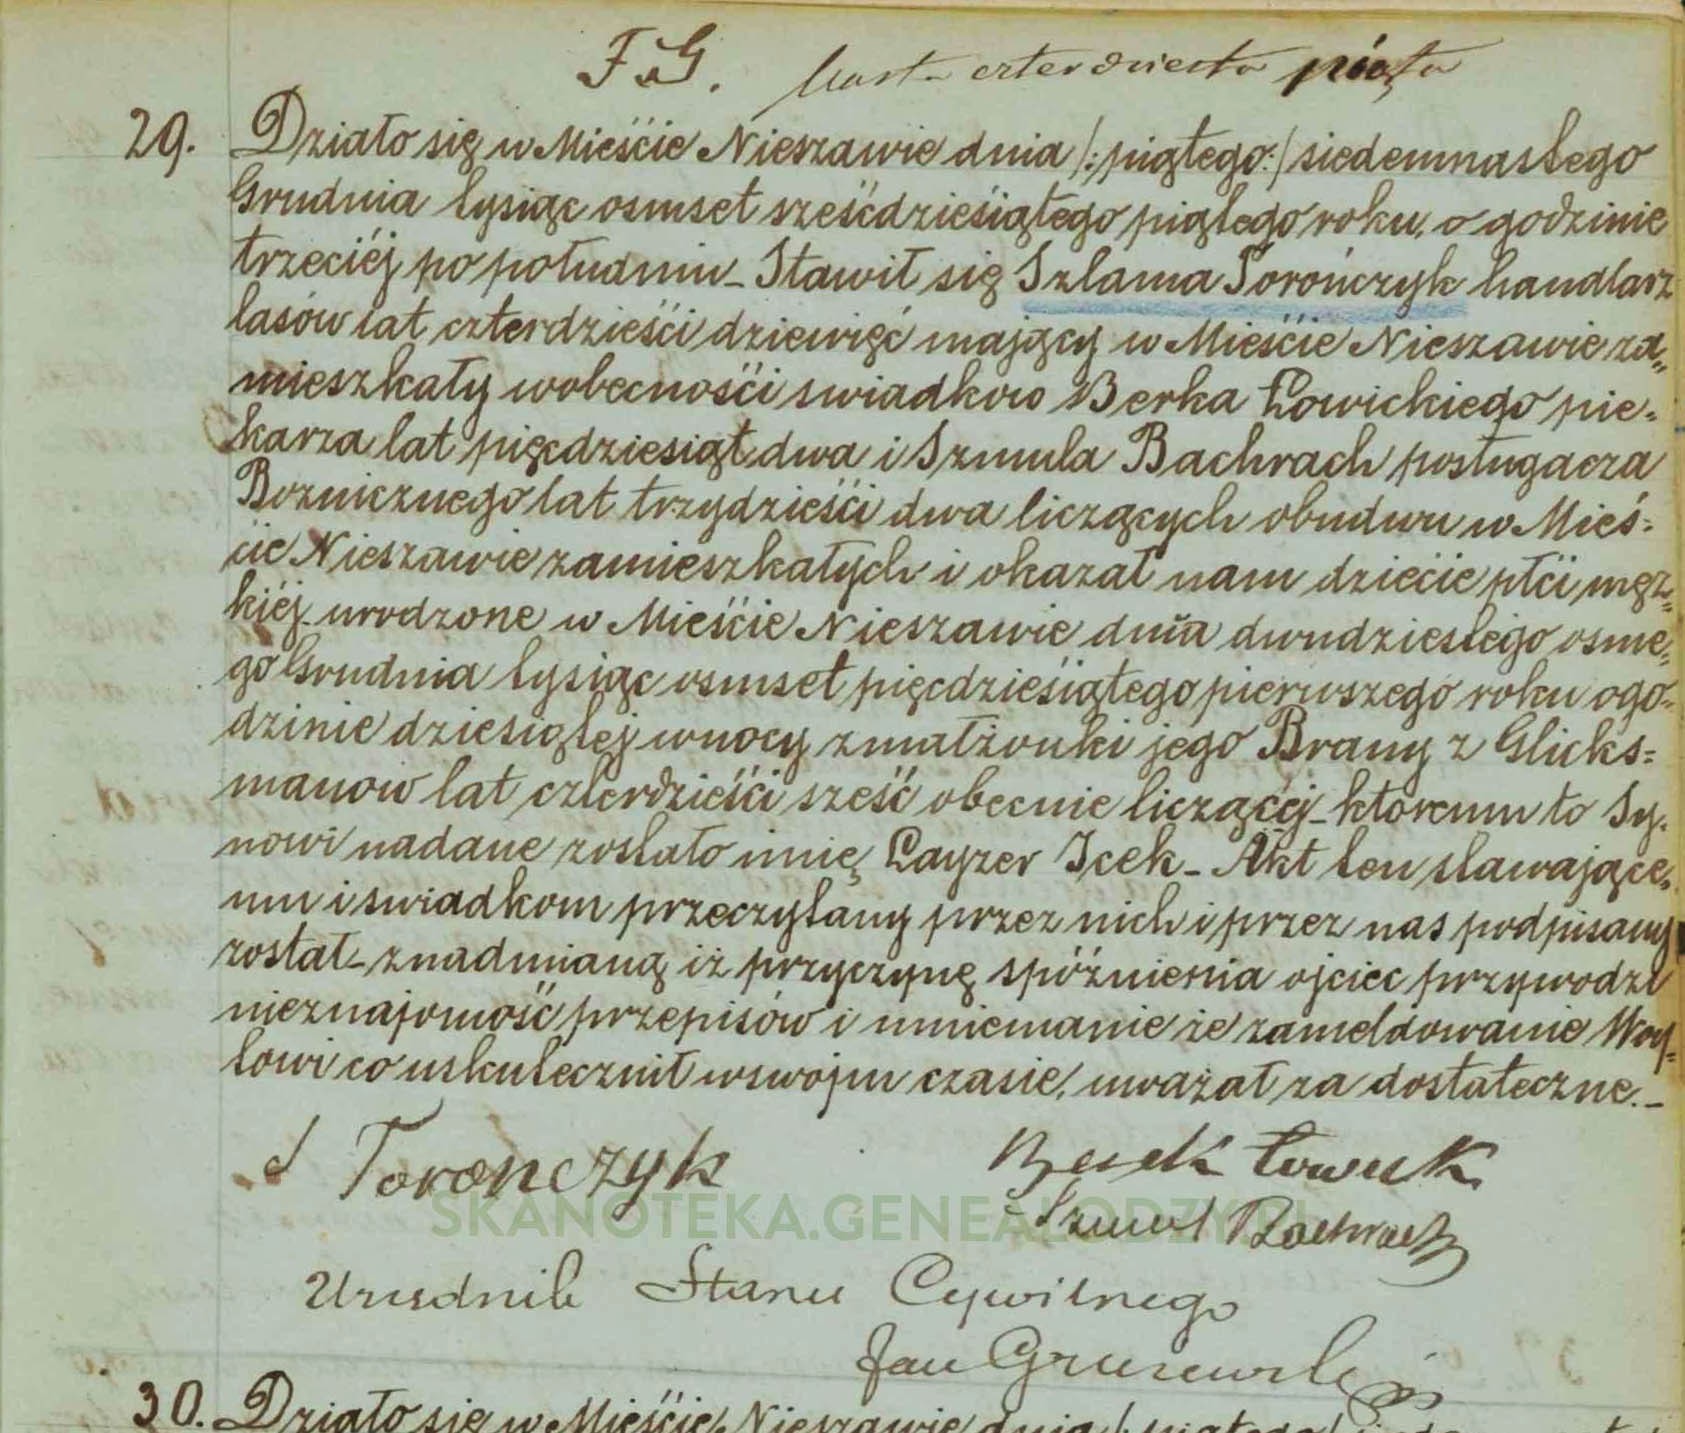 F. G. karta czterdziesta piąta
29. Działo się w Mieście Nieszawie dnia /:piątego:/ siedemnastego
Grudnia tysiąc osmset sześćdziesiątego piątego roku, o godzinie
trzeciéj po południu – Stawił się Szlama Torończyk handlarz
lasów lat czterdzieści dziewięć mający w Mieście Nieszawie za„
mieszkały wobecności swiadkow Berka Łowickiego pie„
karza lat pięcdziesiąt dwa i Szmula Bachrach posługacza
Boznicznego lat trzydzieści dwa liczących obudwu w Mieś„
cie Nieszawie zamieszkałych i okazał nam dziecie płci męz„
kiéj urodzone w Mieście Nieszawie dnia dwudziestego osme„
go Grudnia tysiąc osmset pięcdziesiątego pierwszego roku ogo„
dzinie dziesiątej wnocy zmałżonki jego Brany z Glicks=
manow lat czterdzieści sześć obecnie liczącéj – ktoremu to Sy„
nowi nadane zostało imię Layzer Icek – Akt ten stawające„
mu i swiadkom przeczytany przez nich i przez nas podpisany
został – znadmianą iż przyczynę spóźnienia ojciec przywodzi
nieznajomość przepisów i mniemanie że zameldowanie Woy=
towi co uskutecznił wswojm czasie, uważał za dostateczne. –
S Toronczyk
Berek Łowicki
Szmul Bachrach
SKANOTEKA.GENEALODZY.PL
Urzędnik Stanu Cywilnego
Jan Gruszewski
30. Działo się w Mieście Nieszawie dnia /:piątego:/